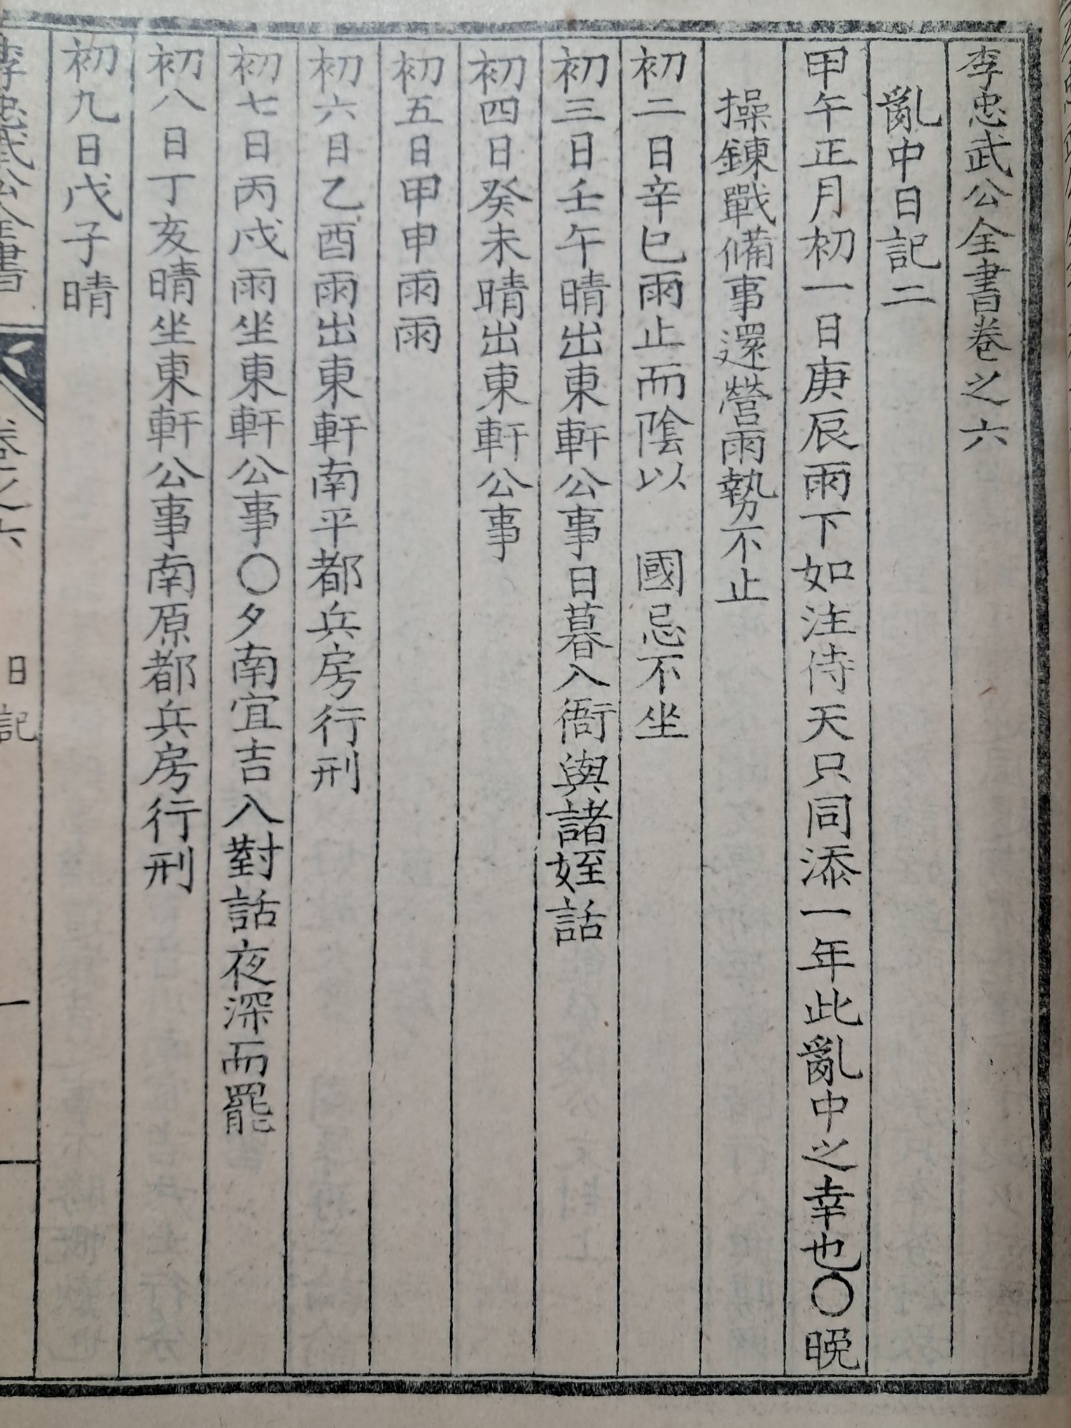 李忠武公全書卷之六
亂中日記二
甲午正月初一日庚辰雨下如注侍天只同添一年此亂中之幸也〇晩
操鍊戰備事還營雨勢不止
初二日辛巳雨止而陰以　國忌不坐
初三日壬午晴出東軒公事日暮入衙與諸姪話
初四日癸未晴出東軒公事
初五日甲申雨雨
初六日乙酉雨出東軒南平都兵房行刑
初七日丙戌雨坐東軒公事〇夕南宜吉入對話夜深而罷
初八日丁亥晴坐東軒公事南原都兵房行刑
初九日戊子晴
李忠武公全書　卷之六　日記　一